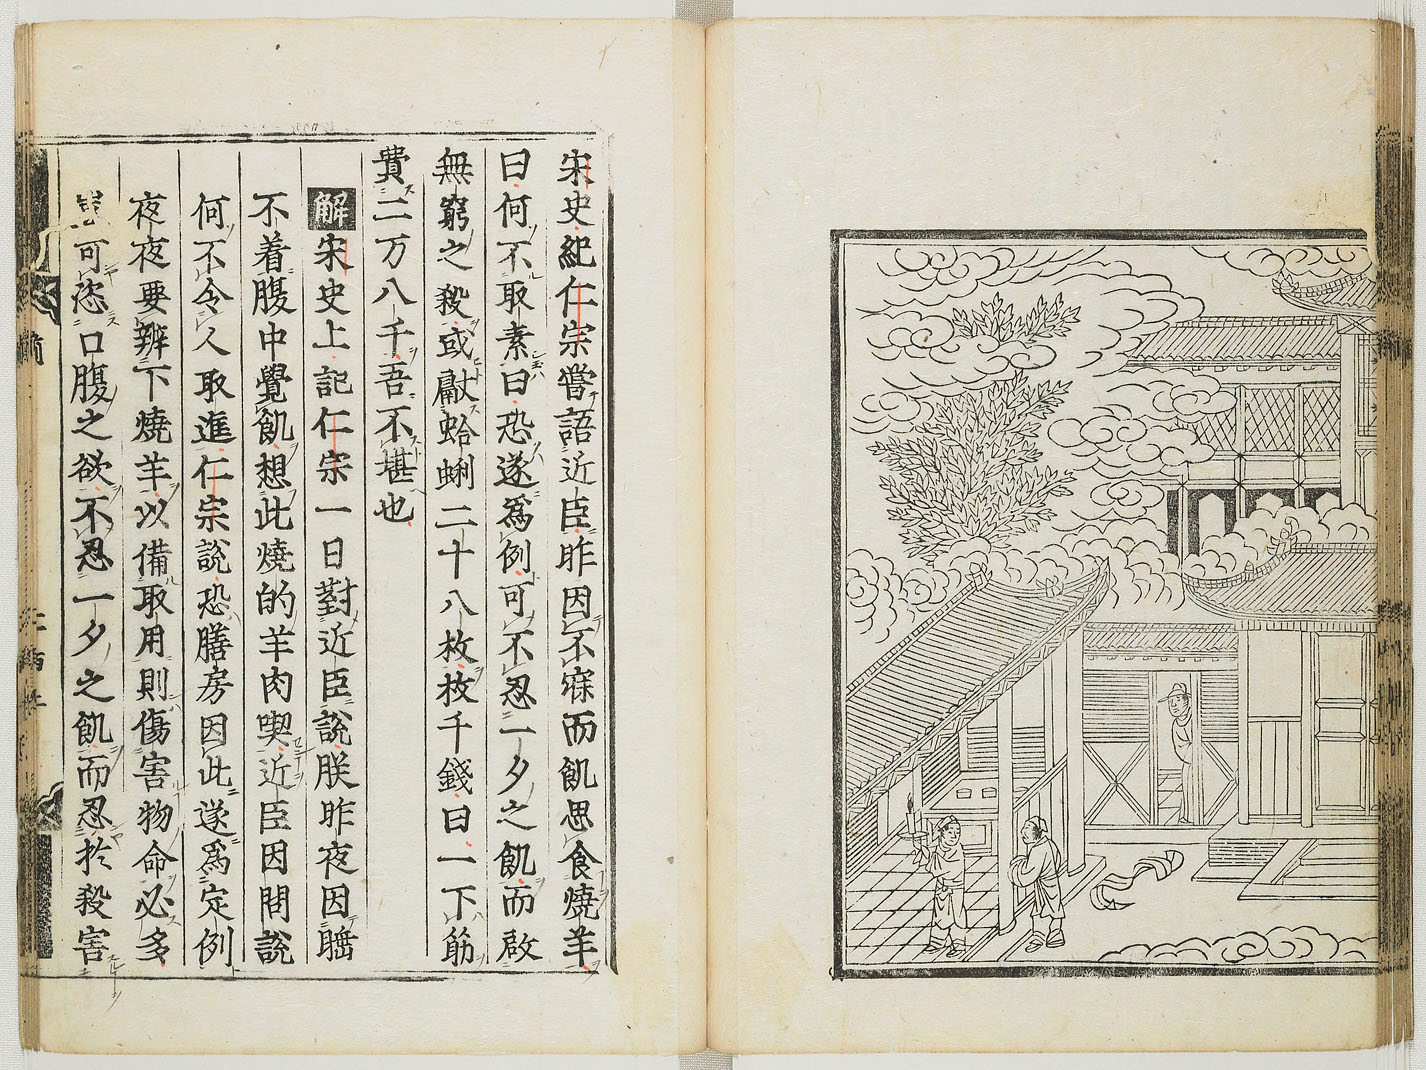 宋史紀仁宗嘗語近臣昨因不寐而飢思食燒羊
曰何不取素曰恐遂爲例可不忍一夕之飢而啟
無窮之殺或獻蛤蜊二十八枚枚千錢曰一下筯
費二万八千吾不堪也
解宋史上記仁宗一日對近臣説朕昨夜因睡
不着腹中覺飢想此燒的羊肉喫近臣因問説
何不令人取進仁宗説恐膳房因此遂爲定例
夜夜要辦下燒羊以備取用則傷害物命必多
豈可恣口腹之欲不忍一夕之飢而忍扵殺害